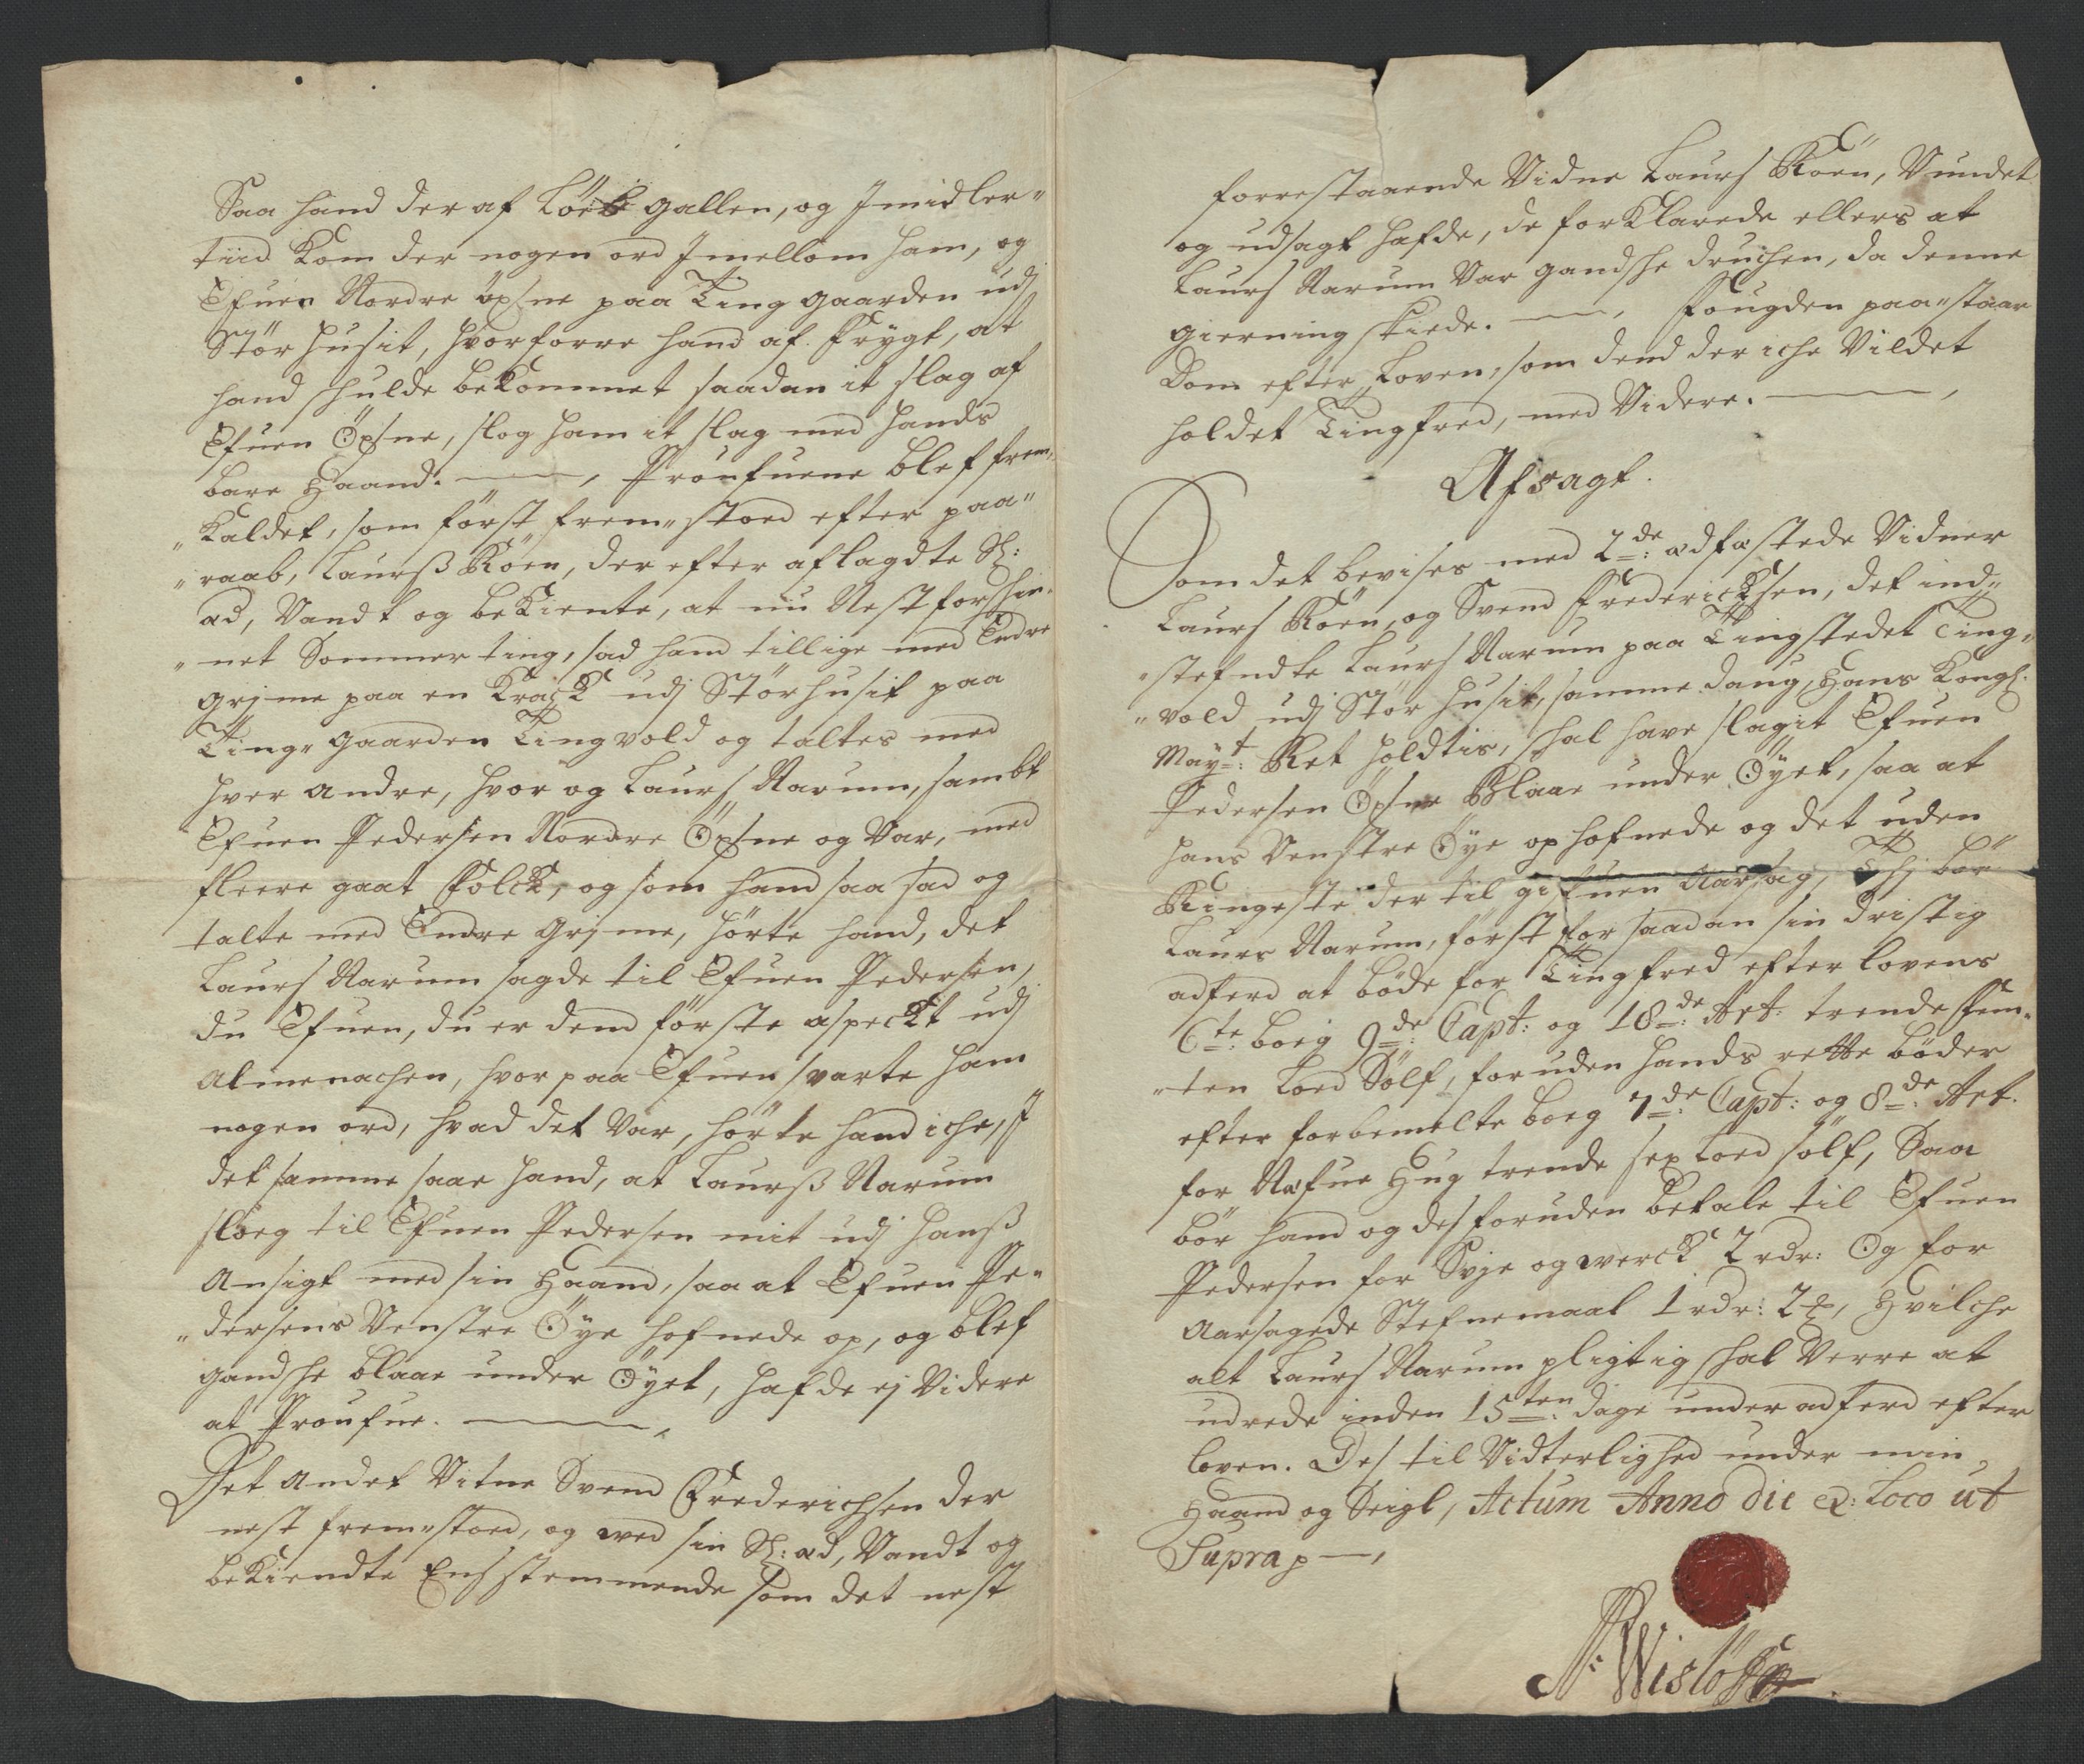 Saa hand der af Löeb gallen, og Jmidler"
tiid kom der nogen ord Jmellom ham, og
Efuen Nordre öxsne paa Ting gaarden udj
Stör husit, hvorforre hand af frygt, at
hand schulde bekommet saadan it slag af
Efuen Öxsne, slog ham it slag med hands
bare Haand. ——, Proufuene blef frem"
"kaldet, som först frem"stoed efter paa"
"raab, Laurß Röen, der efter aflagdte Sl:
æd, Vandt og bekiente, at nu Nest forschin"
"net Sommer ting, sad hand tillige med Endre
Grjme paa en Krack udj Störhusit paa
Ting" gaarden Tingvold og taltes med
hver andre, hvor og Laurs Narum, sambt
Efuen Pedersen Nordre Öxsne og Var, med
fleere gaat Folck, og som hand saa sad og
talte med Endre Grjme, hörte hand, det
Laurs Narum sagde til Efuen Pedersen,
du Efuen, du er dend förste aspeckt udj
Almenachen, hvor paa Efuen svarte ham
nogen ord, hvad det var, hörte hand iche, J
det samme saae hand, at Laurß Narum
sloeg til Efuen Pedersen mit udj hanß
Ansigt med sin Haand, saa at Efuen Pe"
"dersens Venstre Öye hofnede op, og blef
gandsche blaae under Öyet, hafde ej Videre
at Proufue. ——,
Det andet Vitne Svend Frederichsen der
nest frem"stoed, og med sin Sl: æd, Vandt og
bekiendte Ens stemmende som det nest
forrestaaende Vidne Laurs Röen, Vundet
og udsagt hafde, de forklarede ellers at
Laurs Narum Var gandsche druchen, da denne
gierning skiede. ——, Fougden paa"staar
Dom efter Loven, som dend der iche Vildet
holdet Tingfred, med Videre. ——,
Afsagt.
Som det bevises med 2de: ædfæstede Vidner
Laurs Röen, og Svend Fredericksen, det ind"
"stefndte Laurs Narum paa Tingstedet Ting"
"vold udj Stör husit, samme daug, Hans Kongl.
Mayt: Ret holdtis, schal have slagit Efuen
Pedersen Öxsne Blaae under Öyet, saa at
hans Venstre Öye op hofnede og det uden
Ringeste der til gifuen Aarsag, Thj bör
Laurs Narum, först for saadan sin dristig
adferd at böde for Tingfred efter lovens
6te: boeg 9de: Capt: og 18de: Art. trende Fem"
"ten Loed Sölf, foruden hands rette böder
efter forbemelte boeg 7de: Capt: og 8de: Art.
for Næfue Hug trende sex Loed sölf, Saa
bör hand og desforuden betale til Efuen
Pedersen for Svje og werck 2 rdr: Og for
Aarsagede Stefnemaal 1 rdr: 2 #, Hvilche
alt Laurs Narum pligtig schal Verre at
udrede inden 15ten: dage under adferd efter
loven. Des til Vidterlighed under min
Haand og Seigl, Actum Anno die &: Loco ut
Supra p ——,
N: Wislöff